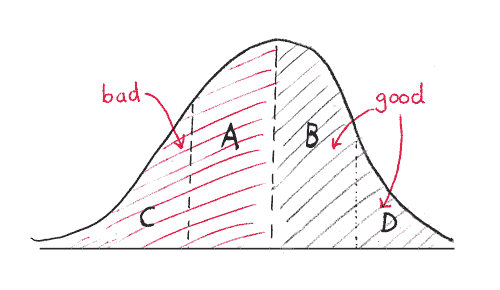 bad
good
A
B
C
D